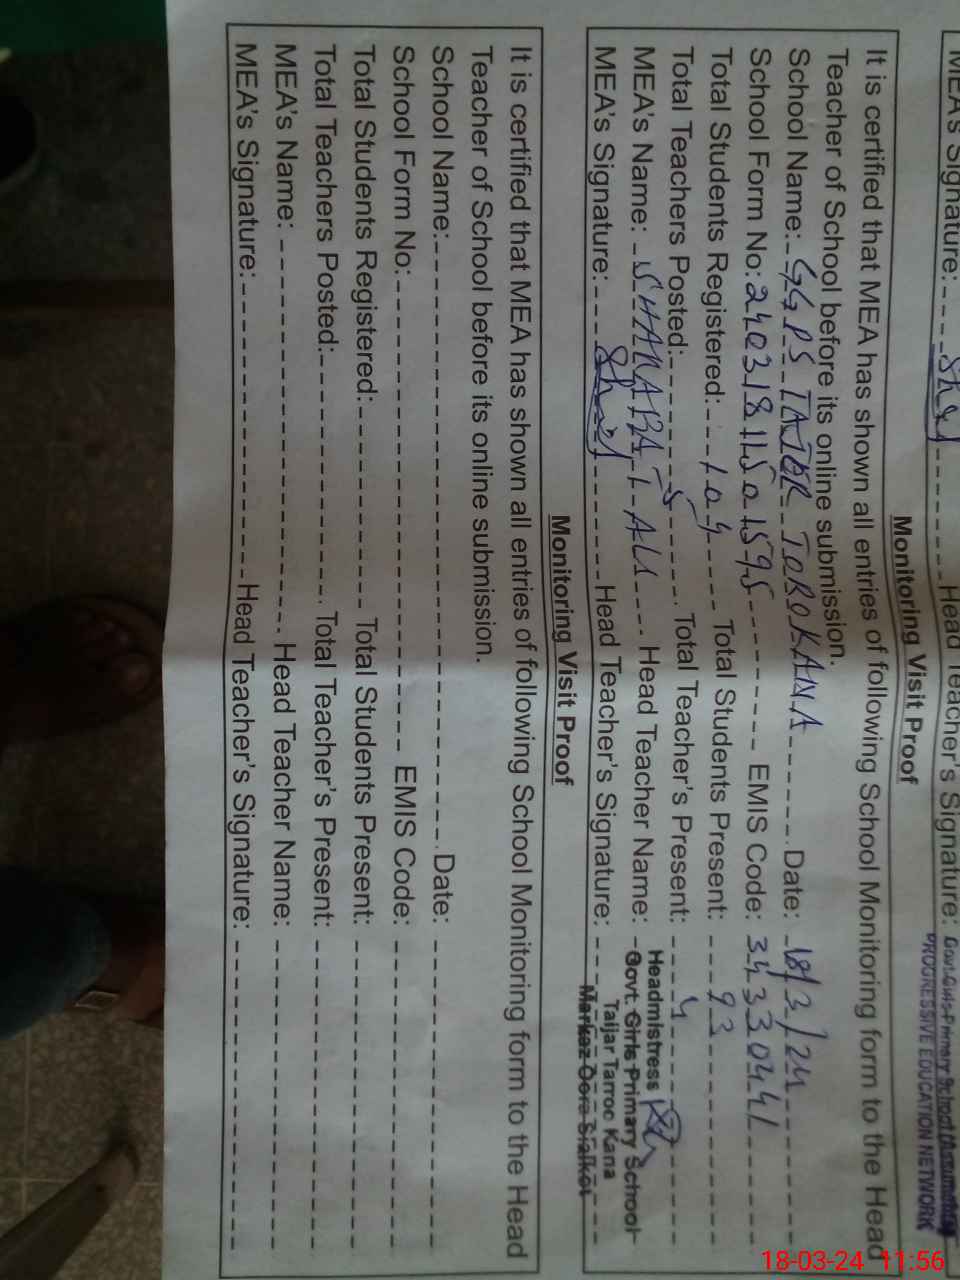 MEA's Signature: Head Teacher's Signature: Govt. Girls Primary School
PROGRESSIVE EDUCATION NETWORK
Monitoring Visit Proof
It is certified that MEA has shown all entries of following School Monitoring form to the Head
Teacher of School before its online submission.
School Name: GGPS TAJOR TOROKANA Date: 18/3/24
School Form No: 24031811501595 EMIS Code: 34330441
Total Students Registered: 104 Total Students Present: 93
Total Teachers Posted: 5 Total Teacher's Present: 4
MEA's Name: SHAHABAT ALI Head Teacher Name:
MEA's Signature: Head Teacher's Signature:
Headmistress
Govt. Girls Primary School
Taijar Tarroc Kana
Markaz Oora Sialkot
Monitoring Visit Proof
It is certified that MEA has shown all entries of following School Monitoring form to the Head
Teacher of School before its online submission.
School Name: Date:
School Form No: EMIS Code:
Total Students Registered: Total Students Present:
Total Teachers Posted: Total Teacher's Present:
MEA's Name: Head Teacher Name:
MEA's Signature: Head Teacher's Signature:
18-03-24 11:56